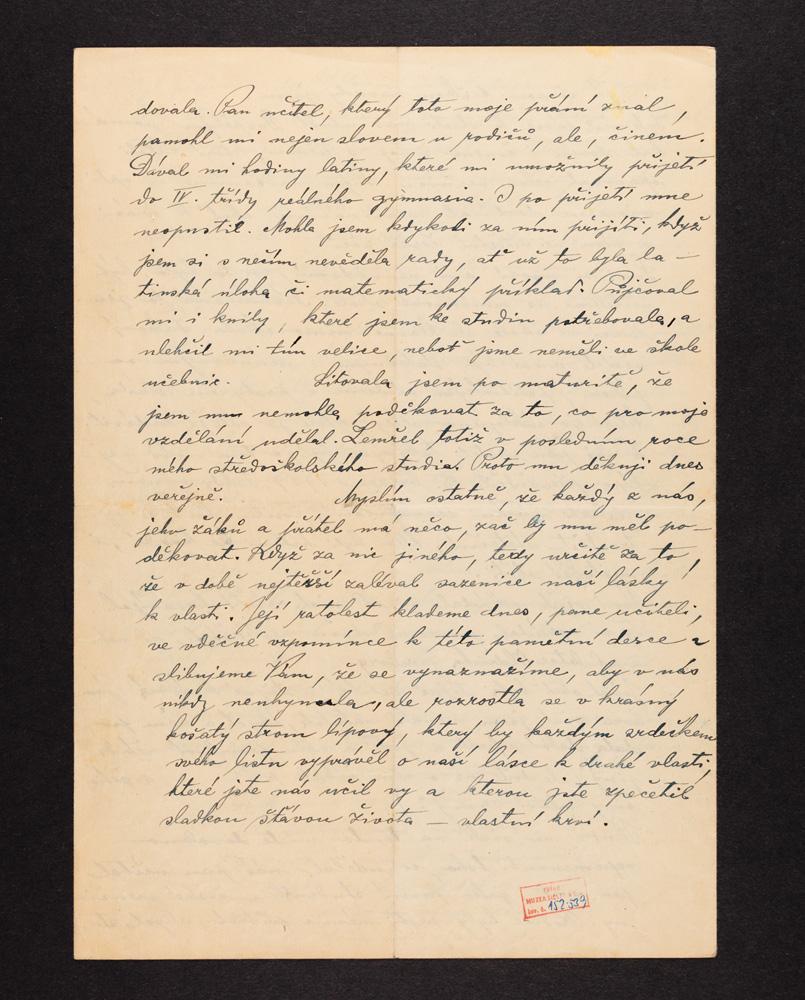 dovala. Pan učitel, který toto moje přání znal,
pomohl mi nejen slovem u rodičů, ale, činem.
Dával mi hodiny latiny, které mi umožnily přijetí
do IV. třídy reálného gymnasia. I po přijetí mne
neopustil. Mohla jsem kdykoli za ním přijíti, když
jsem si s něčím nevěděla rady, ať už to byla la-
tinská úloha či matematický příklad. Půjčoval
mi i knihy, které jsem ke studiu potřebovala, a
ulehčil mi tím velice, neboť jsme neměli ve škole
učebnic. Litovala jsem po maturitě, že
jsem mu nemohla poděkovat za to, co pro moje
vzdělání udělal. Zemřel totiž v posledním roce
mého středoškolského studia. Proto mu děkuji dnes
veřejně. Myslím ostatně, že každý z nás,
jeho žáků a přátel má něco, zač by mu měl po-
děkovat. Když za nic jiného, tedy určitě za to,
že v době nejtěžší zaléval sazenice naší lásky
k vlasti. Její ratolest klademe dnes, pane učiteli,
ve vděčné vzpomínce k této pamětní desce a
slibujeme Vám, že se vynasnažíme, aby v nás
nikdy neuhynula, ale rozrostla se v krásný
košatý strom lípový, který by každým srdéčkem
svého listu vyprávěl o naší lásce k drahé vlasti,
které jste nás učil vy a kterou jste zpečetil
sladkou šťávou života – vlastní krví.
MUZEA
inv. č. 152.539